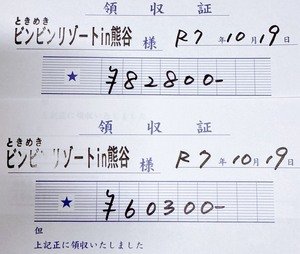 領収証
ときめき
ビンビンリゾートin熊谷 様 R7年10月19日
★ ¥82800-
領収証
ときめき
ビンビンリゾートin熊谷 様 R7年10月19日
★ ¥60300-
但
上記正に領収いたしました